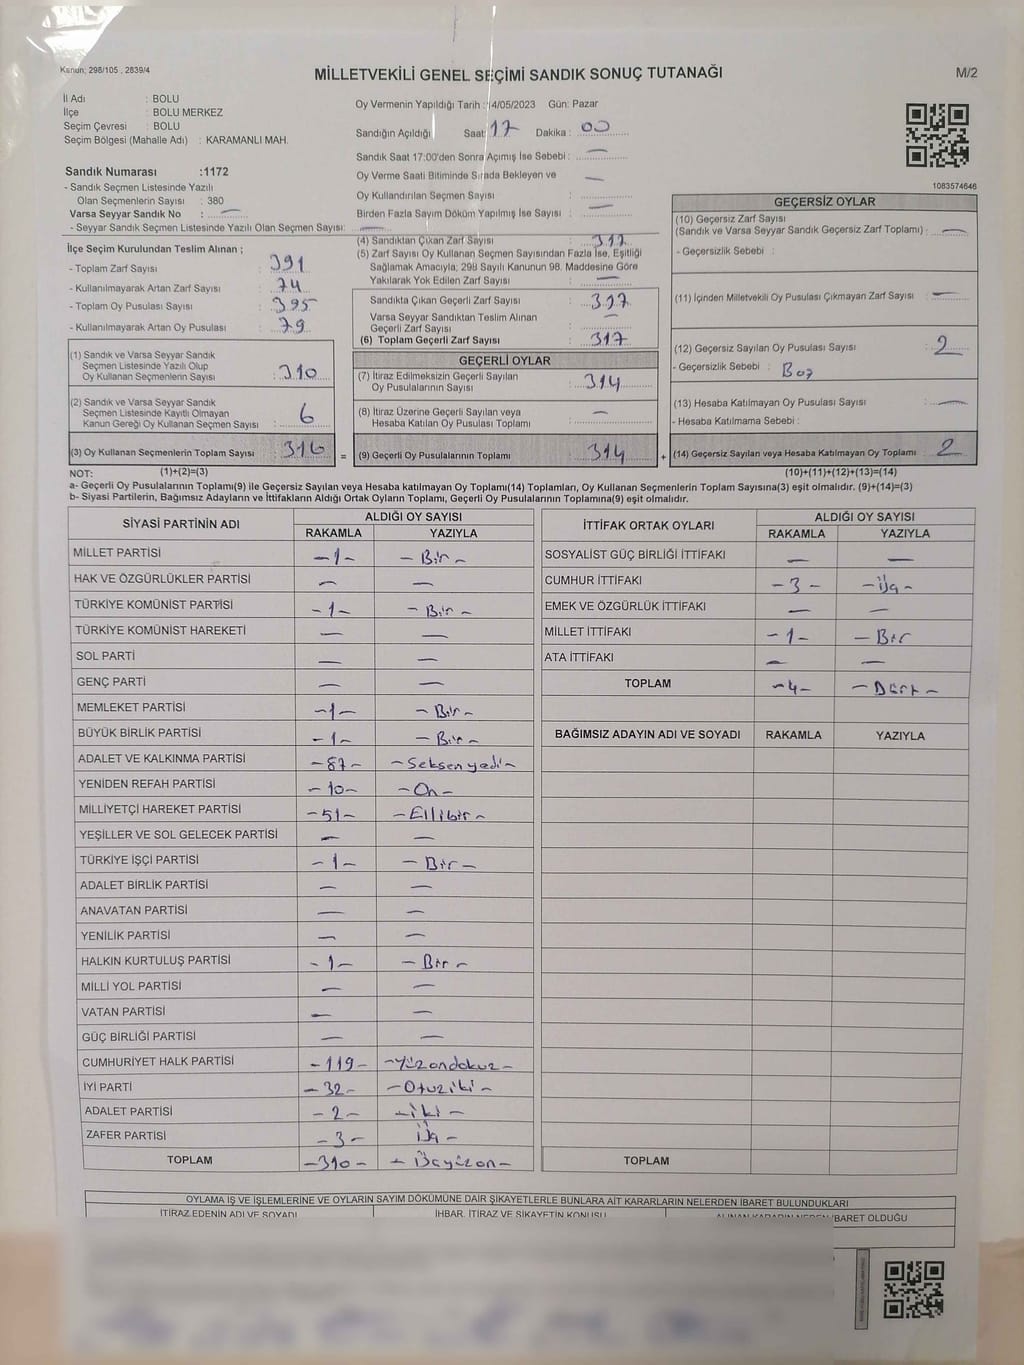 Kanun; 298/105 , 2839/4
MİLLETVEKİLİ GENEL SEÇİMİ SANDIK SONUÇ TUTANAĞI
M/2
İl Adı : BOLU
İlçe : BOLU MERKEZ
Seçim Çevresi : BOLU
Seçim Bölgesi (Mahalle Adı) : KARAMANLI MAH.
Oy Vermenin Yapıldığı Tarih : 14/05/2023 Gün: Pazar
Sandığın Açıldığı Saat: 17 Dakika : 00
Sandık Saat 17:00'den Sonra Açımış İse Sebebi : —
Oy Verme Saati Bitiminde Sırada Bekleyen ve —
Oy Kullandırılan Seçmen Sayısı :
Birden Fazla Sayım Döküm Yapılmış İse Sayısı : —
1083574646
Sandık Numarası :1172
- Sandık Seçmen Listesinde Yazılı
Olan Seçmenlerin Sayısı : 380
Varsa Seyyar Sandık No : —
- Seyyar Sandık Seçmen Listesinde Yazılı Olan Seçmen Sayısı: —
İlçe Seçim Kurulundan Teslim Alınan ;
- Toplam Zarf Sayısı : 391
- Kullanılmayarak Artan Zarf Sayısı : 74
- Toplam Oy Pusulası Sayısı : 395
- Kullanılmayarak Artan Oy Pusulası : 79
(1) Sandık ve Varsa Seyyar Sandık
Seçmen Listesinde Yazılı Olup
Oy Kullanan Seçmenlerin Sayısı : 310
(2) Sandık ve Varsa Seyyar Sandık
Seçmen Listesinde Kayıtlı Olmayan
Kanun Gereği Oy Kullanan Seçmen Sayısı : 6
(3) Oy Kullanan Seçmenlerin Toplam Sayısı : 316
(4) Sandıktan Çıkan Zarf Sayısı : 317
(5) Zarf Sayısı Oy Kullanan Seçmen Sayısından Fazla İse, Eşitliği
Sağlamak Amacıyla; 298 Sayılı Kanunun 98. Maddesine Göre
Yakılarak Yok Edilen Zarf Sayısı : —
Sandıkta Çıkan Geçerli Zarf Sayısı : 317
Varsa Seyyar Sandıktan Teslim Alınan
Geçerli Zarf Sayısı : —
(6) Toplam Geçerli Zarf Sayısı : 317
GEÇERLİ OYLAR
(7) İtiraz Edilmeksizin Geçerli Sayılan
Oy Pusulalarının Sayısı : 314
(8) İtiraz Üzerine Geçerli Sayılan veya
Hesaba Katılan Oy Pusulası Toplamı : —
= (9) Geçerli Oy Pusulalarının Toplamı : 314
GEÇERSİZ OYLAR
(10) Geçersiz Zarf Sayısı
(Sandık ve Varsa Seyyar Sandık Geçersiz Zarf Toplamı) : —
- Geçersizlik Sebebi :
(11) İçinden Milletvekili Oy Pusulası Çıkmayan Zarf Sayısı : —
(12) Geçersiz Sayılan Oy Pusulası Sayısı : 2
- Geçersizlik Sebebi : Boş
(13) Hesaba Katılmayan Oy Pusulası Sayısı : —
- Hesaba Katılmama Sebebi :
+ (14) Geçersiz Sayılan veya Hesaba Katılmayan Oy Toplamı : 2
NOT: (1)+(2)=(3) (10)+(11)+(12)+(13)=(14)
a- Geçerli Oy Pusulalarının Toplamı(9) ile Geçersiz Sayılan veya Hesaba katılmayan Oy Toplamı(14) Toplamları, Oy Kullanan Seçmenlerin Toplam Sayısına(3) eşit olmalıdır. (9)+(14)=(3)
b- Siyasi Partilerin, Bağımsız Adayların ve İttifakların Aldığı Ortak Oyların Toplamı, Geçerli Oy Pusulalarının Toplamına(9) eşit olmalıdır.
SİYASİ PARTİNİN ADI ALDIĞI OY SAYISI
RAKAMLA YAZIYLA
MİLLET PARTİSİ -1- -Bir-
HAK VE ÖZGÜRLÜKLER PARTİSİ — —
TÜRKİYE KOMÜNİST PARTİSİ -1- -Bir-
TÜRKİYE KOMÜNİST HAREKETİ — —
SOL PARTİ — —
GENÇ PARTİ — —
MEMLEKET PARTİSİ -1- -Bir-
BÜYÜK BİRLİK PARTİSİ -1- -Bir-
ADALET VE KALKINMA PARTİSİ -87- -Seksenyedi-
YENİDEN REFAH PARTİSİ -10- -On-
MİLLİYETÇİ HAREKET PARTİSİ -51- -Ellibir-
YEŞİLLER VE SOL GELECEK PARTİSİ — —
TÜRKİYE İŞÇİ PARTİSİ -1- -Bir-
ADALET BİRLİK PARTİSİ — —
ANAVATAN PARTİSİ — —
YENİLİK PARTİSİ — —
HALKIN KURTULUŞ PARTİSİ -1- -Bir-
MİLLİ YOL PARTİSİ — —
VATAN PARTİSİ — —
GÜÇ BİRLİĞİ PARTİSİ — —
CUMHURİYET HALK PARTİSİ -119- -Yüzondokuz-
İYİ PARTİ -32- -Otuziki-
ADALET PARTİSİ -2- -iki-
ZAFER PARTİSİ -3- Üç-
TOPLAM -310- -Üçyüzon-
İTTİFAK ORTAK OYLARI ALDIĞI OY SAYISI
RAKAMLA YAZIYLA
SOSYALİST GÜÇ BİRLİĞİ İTTİFAKI — —
CUMHUR İTTİFAKI -3- -Üç-
EMEK VE ÖZGÜRLÜK İTTİFAKI — —
MİLLET İTTİFAKI -1- -Bir
ATA İTTİFAKI — —
TOPLAM -4- -Dört-
BAĞIMSIZ ADAYIN ADI VE SOYADI RAKAMLA YAZIYLA
TOPLAM
OYLAMA İŞ VE İŞLEMLERİNE VE OYLARIN SAYIM DÖKÜMÜNE DAİR ŞİKAYETLERLE BUNLARA AİT KARARLARIN NELERDEN İBARET BULUNDUKLARI
İTİRAZ EDENİN ADI VE SOYADI İHBAR, İTİRAZ VE ŞİKAYETİN KONUSU ALINAN KARARIN NEDEN İBARET OLDUĞU